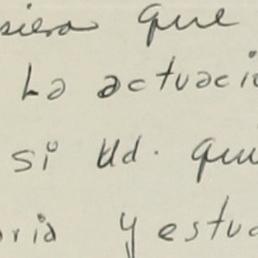 siera que
La actuaci
si Ud. qui
oria y estud